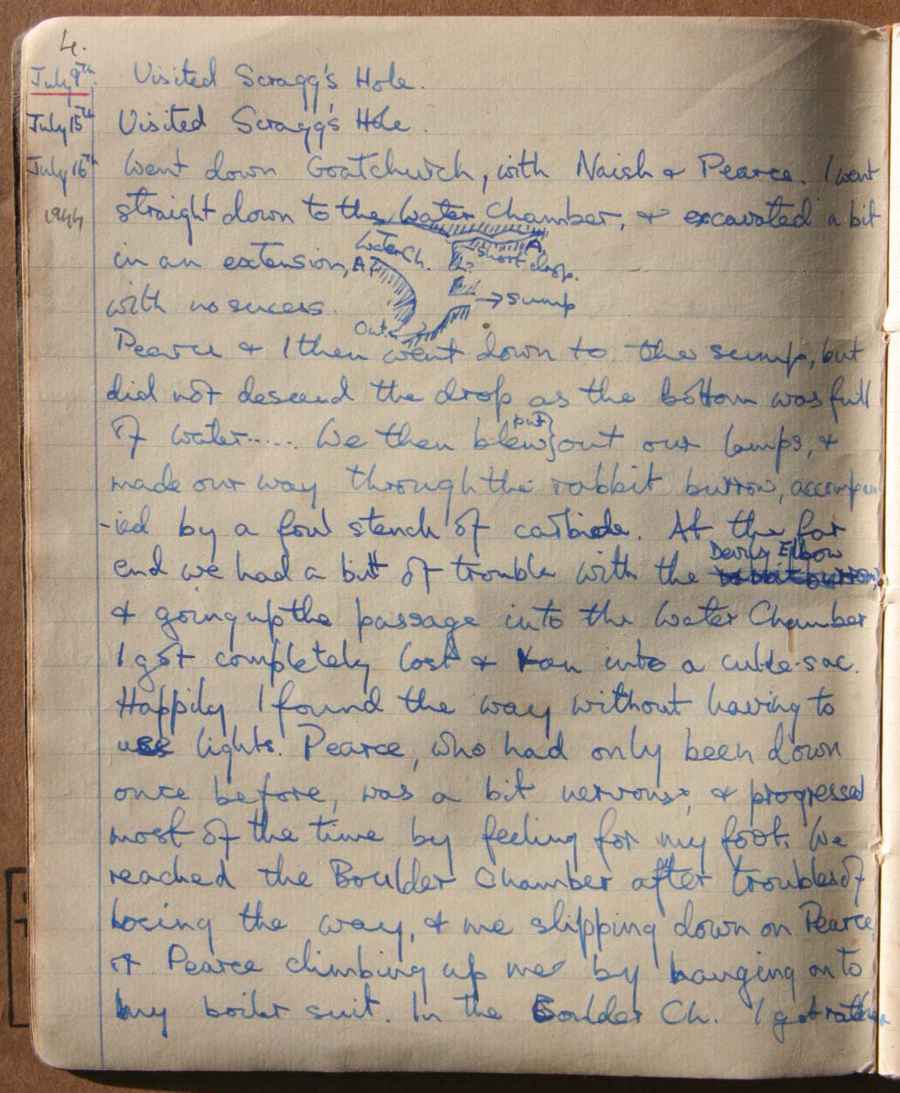 4.
July 9th. Visited Scragg's Hole.
July 15th Visited Scragg's Hole.
July 16th Went down Goatchurch, with Naish & Pearce. I went
1944 straight down to the Water Chamber, & excavated a bit
in an extension,
Water Ch. A
A, short drop.
with no sucess.
→ sump
Out
Pearce & I then went down to the sump, but
did not descend the drop as the bottom was full
of water..... We then blew out our lamps, &
put
made our way through the rabbit burrow, accompan
-ied by a foul stench of carbide. At the far
end we had a bit of trouble with the rabbit burrow
Devils Elbow
& going up the passage into the Water Chamber
I got completely lost & ran into a cul-de-sac.
Happily I found the way without having to
use lights. Pearce, who had only been down
once before, was a bit nervous, & progressed
most of the time by feeling for my foot. We
reached the Boulder Chamber after troubles of
losing the way, & me slipping down on Pearce,
or Pearce climbing up me by hanging on to
my boiler suit. In the Boulder Ch. I got rather